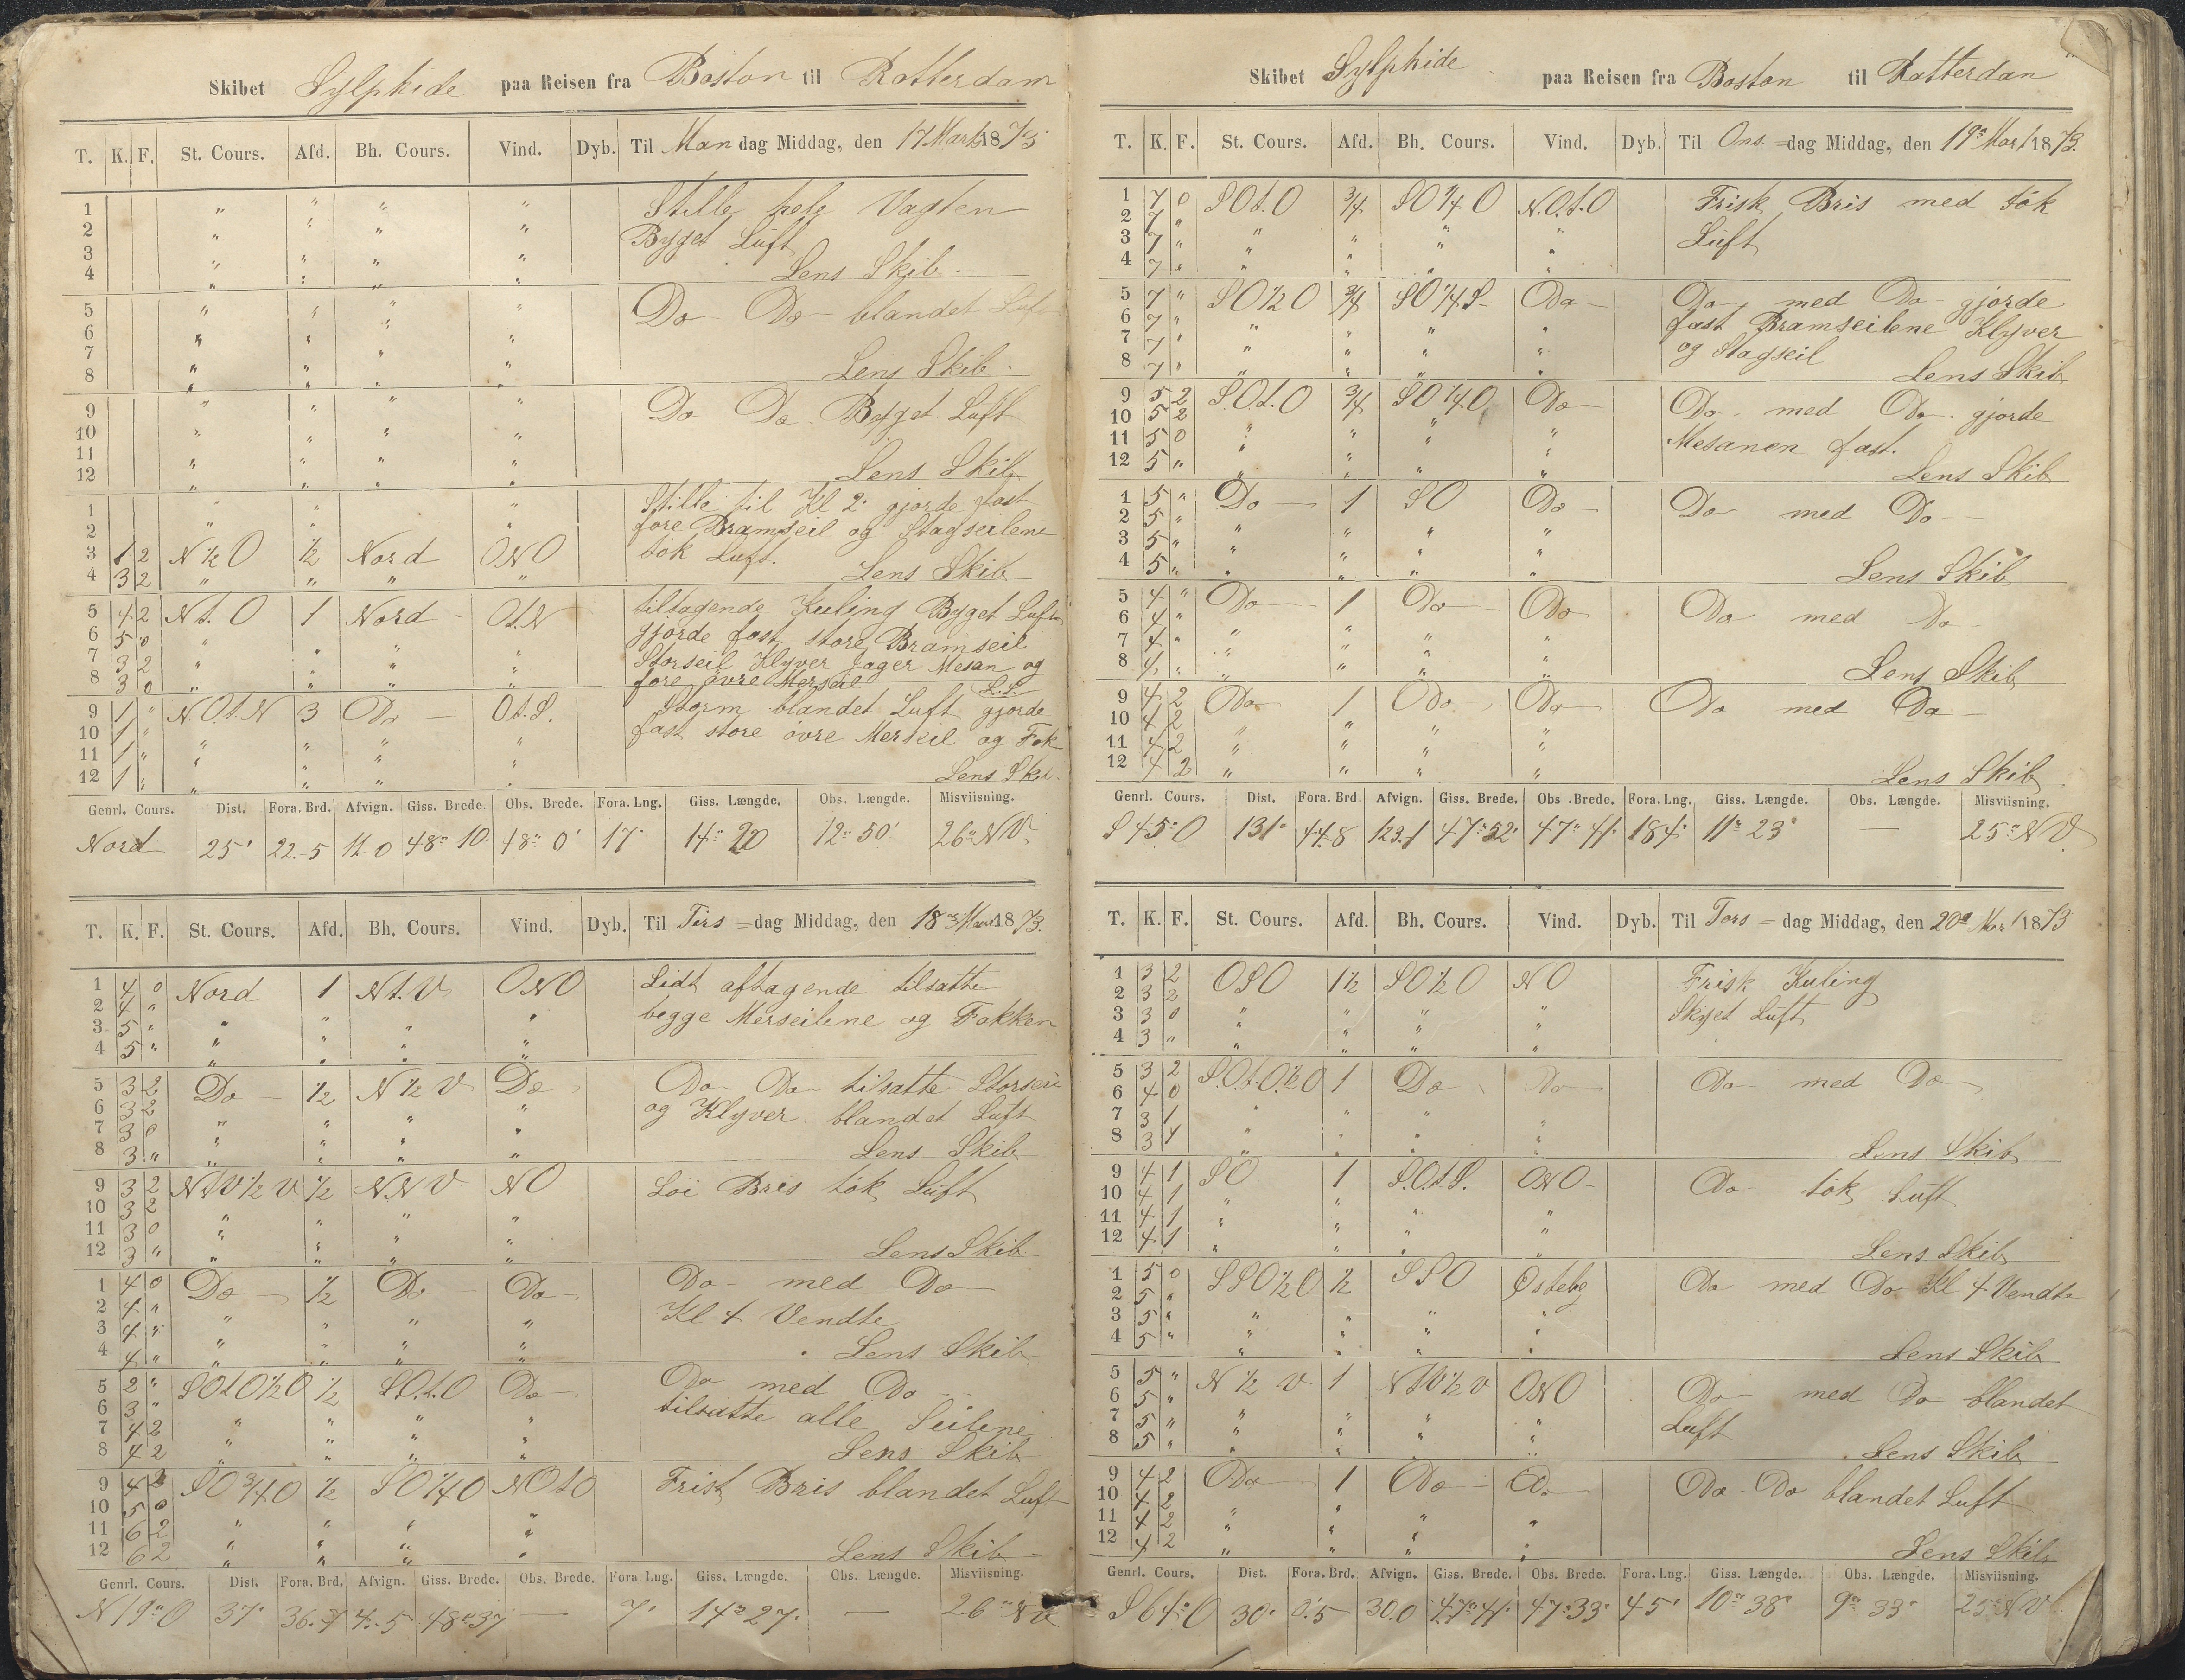 Skibet Sylphide paa Reisen fra Boston til Rotterdam
T. K. F. St. Cours. Afd. Bh. Cours. Vind. Dyb. Til Man dag Middag, den 17 Marts 1873
1 " " " " Stille hele Vagten
2 " " " " Byget Luft
3 " " " "
4 " " " " Lens Skib.
5 " " " " Do Do blandet Luft
6 " " " "
7 " " " "
8 " " " " Lens Skib.
9 " " " " Do Do. Byget Luft
10 " " " "
11 " " " "
12 " " " " Lens Skib
1 " " " Stille til Kl 2. gjorde fast
2 " " " fore Bramseil og Stagseilene
3 1 2 N ½ O ½ Nord ONO tök Luft.
4 3 2 " " " " Lens Skib
5 4 2 N t. O 1 Nord Ot.N tiltagende Kuling Byget Luft
6 5 0 " " " " gjorde fast store Bramseil
7 3 2 " " " " Storseil Klyver Jager Mesan og
8 3 0 " " " " fore övre Merseil L.S.
9 1 " N.O.t.N 3 Do O.t.S. Storm blandet Luft gjorde
10 1 " " " " " fast store övre Merseil og Fok
11 1 " " " " "
12 1 " " " " " Lens Ski
Genrl. Cours. Dist. Fora. Brd. Afvign. Giss. Brede. Obs. Brede. Fora. Lng. Giss. Længde. Obs. Længde. Misviisning.
Nord 25' 22.5 11.0 48° 10 48° 0' 17' 14° 20 12° 50' 26° NV
T. K. F. St. Cours. Afd. Bh. Cours. Vind. Dyb. Til Tirs dag Middag, den 18 Mar 1873.
1 4 0 Nord 1 Nt.V ONO Lidt aftagende tilsatte
2 4 " " " " " begge Merseilene og Fokken
3 5 " " " " "
4 5 " " " " "
5 3 2 Do ½ N ½ V Do Do Do tilsatte Storseil
6 3 2 " " " " og Klyver blandet Luft
7 3 0 " " " "
8 3 " " " " " Lens Skib
9 3 2 NtV ½ V ½ NNV NO Löi Bris tök Luft
10 3 2 " " " "
11 3 0 " " " "
12 3 " " " " " Lens Skib
1 4 0 Do ½ Do Do Do med Do
2 4 " " " " " Kl 4 Vendte
3 4 " " " " "
4 4 " " " " " Lens Skib
5 2 " SOtO ½ O ½ SO.t.O Do Do med Do
6 3 " " " " " tilsatte alle Seilene
7 4 2 " " " "
8 4 2 " " " " Lens Skib
9 4 2 SO ¾ O ½ SO ¼ O NOtO Frisk Bris blandet Luft
10 5 0 " " " "
11 6 2 " " " "
12 6 2 " " " " Lens Skib
Genrl. Cours. Dist. Fora. Brd. Afvign. Giss. Brede. Obs. Brede. Fora Lng. Giss. Længde. Obs. Længde. Misviisning.
N 19° O 37' 36.7 4.5 48° 37 — 7' 14° 27' — 26° NV
Skibet Sylphide paa Reisen fra Boston til Rotterdan
T. K. F. St. Cours. Afd. Bh. Cours. Vind. Dyb. Til Ons. dag Middag, den 19° Mart 1873.
1 7 0 SOt.O ¾ SO ¼ O N.O.t.O Frisk Bris med tök
2 7 " " " " " Luft
3 7 " " " " "
4 7 " " " " "
5 7 " SO ½ O ¾ SO ¼ S Do Do, med Do gjorde
6 7 " " " " " fast Bramseilene Klyver
7 7 " " " " " og Stagseil
8 7 " " " " " Lens Skib
9 5 2 S.O.t.O ¾ SO ¼ O Do Do med Do gjorde
10 5 2 " " " " Mesanen fast.
11 5 0 " " " "
12 5 " " " " " Lens Skib
1 5 " Do 1 SO Do Do med Do
2 5 " " " " "
3 5 " " " " "
4 5 " " " " " Lens Skib
5 4 " Do 1 Do Do Do med Do
6 4 " " " " "
7 4 " " " " "
8 4 " " " " " Lens Skib
9 4 2 Do 1 Do Do Do med Do
10 4 2 " " " "
11 4 2 " " " "
12 4 2 " " " " Lens Skib
Genrl. Cours. Dist. Fora. Brd. Afvign. Giss. Brede. Obs. Brede. Fora. Lng. Giss. Længde. Obs. Længde. Misviisning.
S 45° O 131' 44.8 123.1 47° 52' 47° 41' 184' 11° 23' — 25° NV.
T. K. F. St. Cours. Afd. Bh. Cours. Vind. Dyb. Til Tors dag Middag, den 20° Mar 1873
1 3 2 OSO 1½ SO ½ O NO Frisk Kuling
2 3 2 Skyet Luft
3 3 0 " " " "
4 3 " " " " "
5 3 2 S.O.t.O. ½ O 1 Do Do Do med Do
6 4 0
7 3 1 " " " "
8 3 1 " " " " Lens Skib
9 4 1 SO 1 S.O.t.S. ONO Do tök Luft
10 4 1 " " " "
11 4 1 " " " "
12 4 1 " " " " Lens Skib
1 5 0 SSO ½ O ½ SSO Östelig Do med Do Kl 4 Vendte
2 5 "
3 5 " " " " "
4 5 " " " " " Lens Skib
5 5 " N ½ V 1 NtV ½ V ONO Do med Do blandet
6 5 " Luft
7 5 " " " " "
8 5 " " " " " Lens Skib
9 4 2 Do 1 Do Do Do. Do blandet Luft
10 4 2
11 4 2 " " " "
12 4 2 " " " " Lens Skib
Genrl. Cours. Dist. Fora. Brd. Afvign. Giss. Brede. Obs. Brede. Fora. Lng. Giss. Længde. Obs. Længde. Misviisning.
S 64° O 30' 0.5 30.0 47° 41' 47° 33' 45' 10° 38' 9° 33' 25° NV